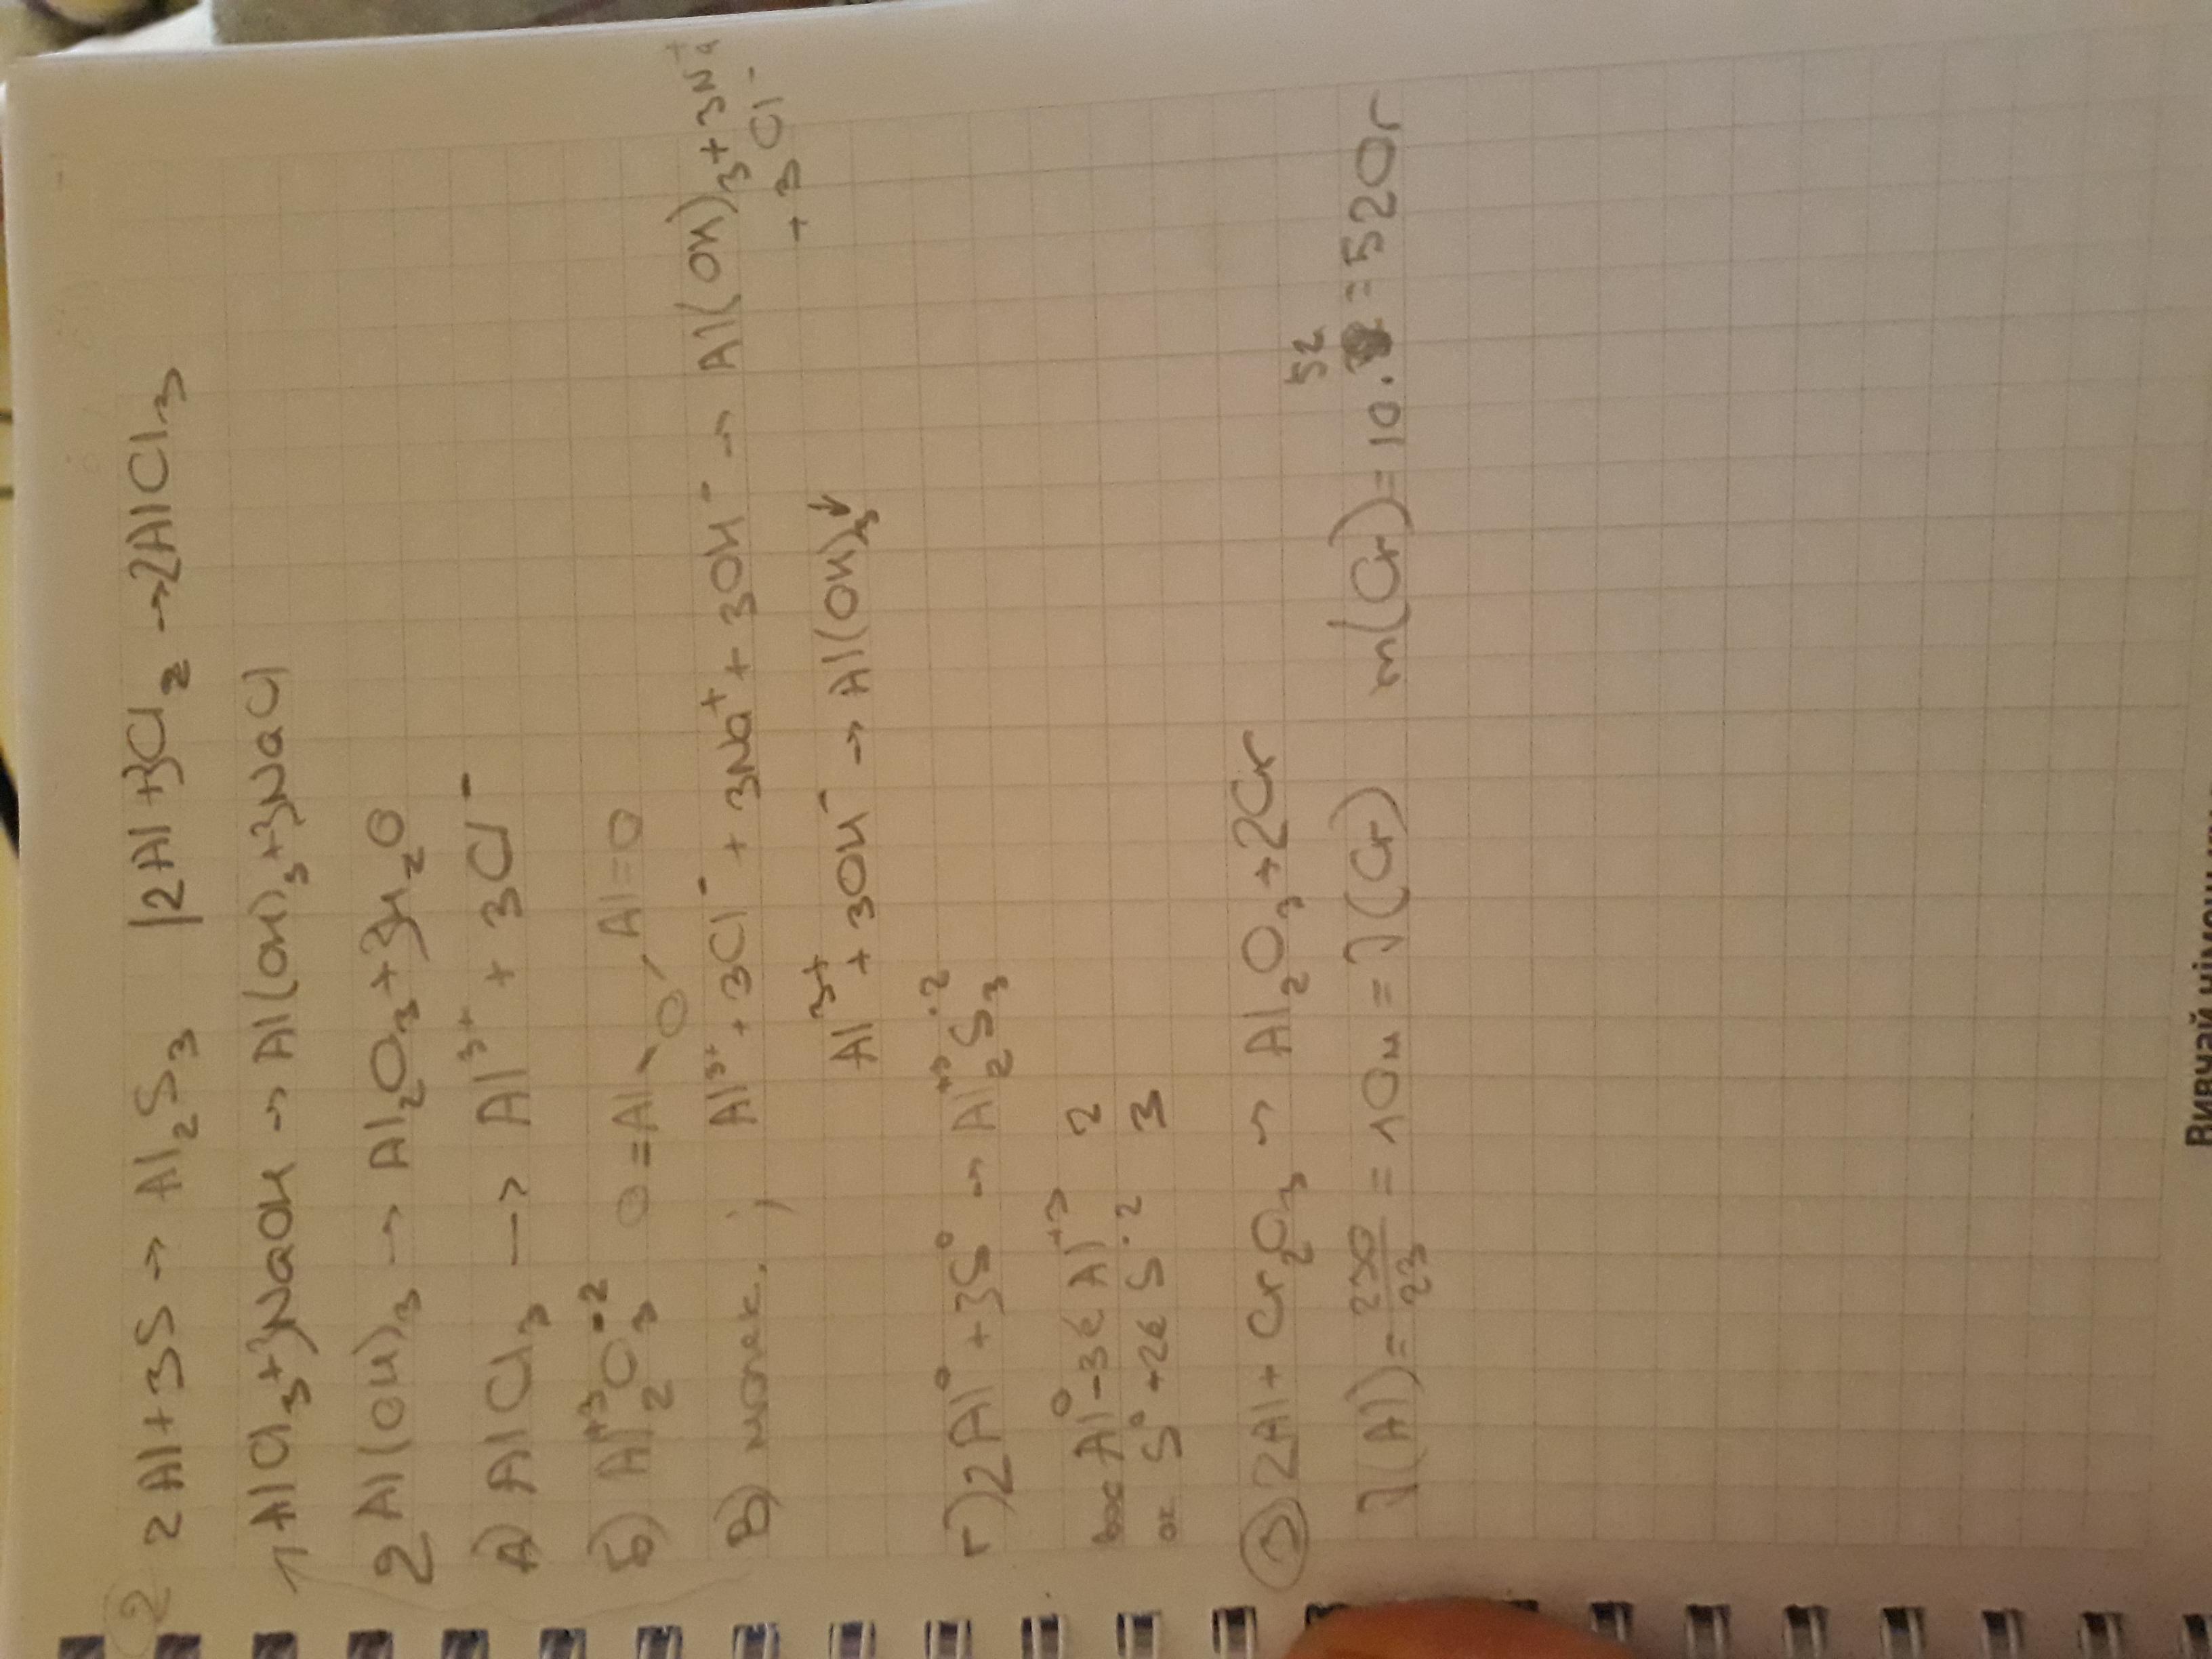 ② 2Al+3S → Al₂S₃ | 2Al+3Cl₂ → 2AlCl₃
AlCl₃+3NaOH → Al(OH)₃+3NaCl
2Al(OH)₃ → Al₂O₃+3H₂O
А) AlCl₃ → Al³⁺ + 3Cl⁻
Б) Al₂⁺³O₃⁻² O=Al–O–Al=O
В) молек. ; Al³⁺+3Cl⁻+3Na⁺+3OH⁻ → Al(OH)₃+3Na⁺
+3Cl⁻
Al³⁺+3OH⁻ → Al(OH)₃↓
г) 2Al⁰+3S⁰ → Al₂⁺³S₃⁻²
вос Al⁰-3ē Al⁺³ 2
ок S⁰+2ē S⁻² 3
③ 2Al+Cr₂O₃ → Al₂O₃+2Cr
ν(Al)=230/23=10м=ν(Cr) m(Cr)=10·52=520г
Вивчай німецьку